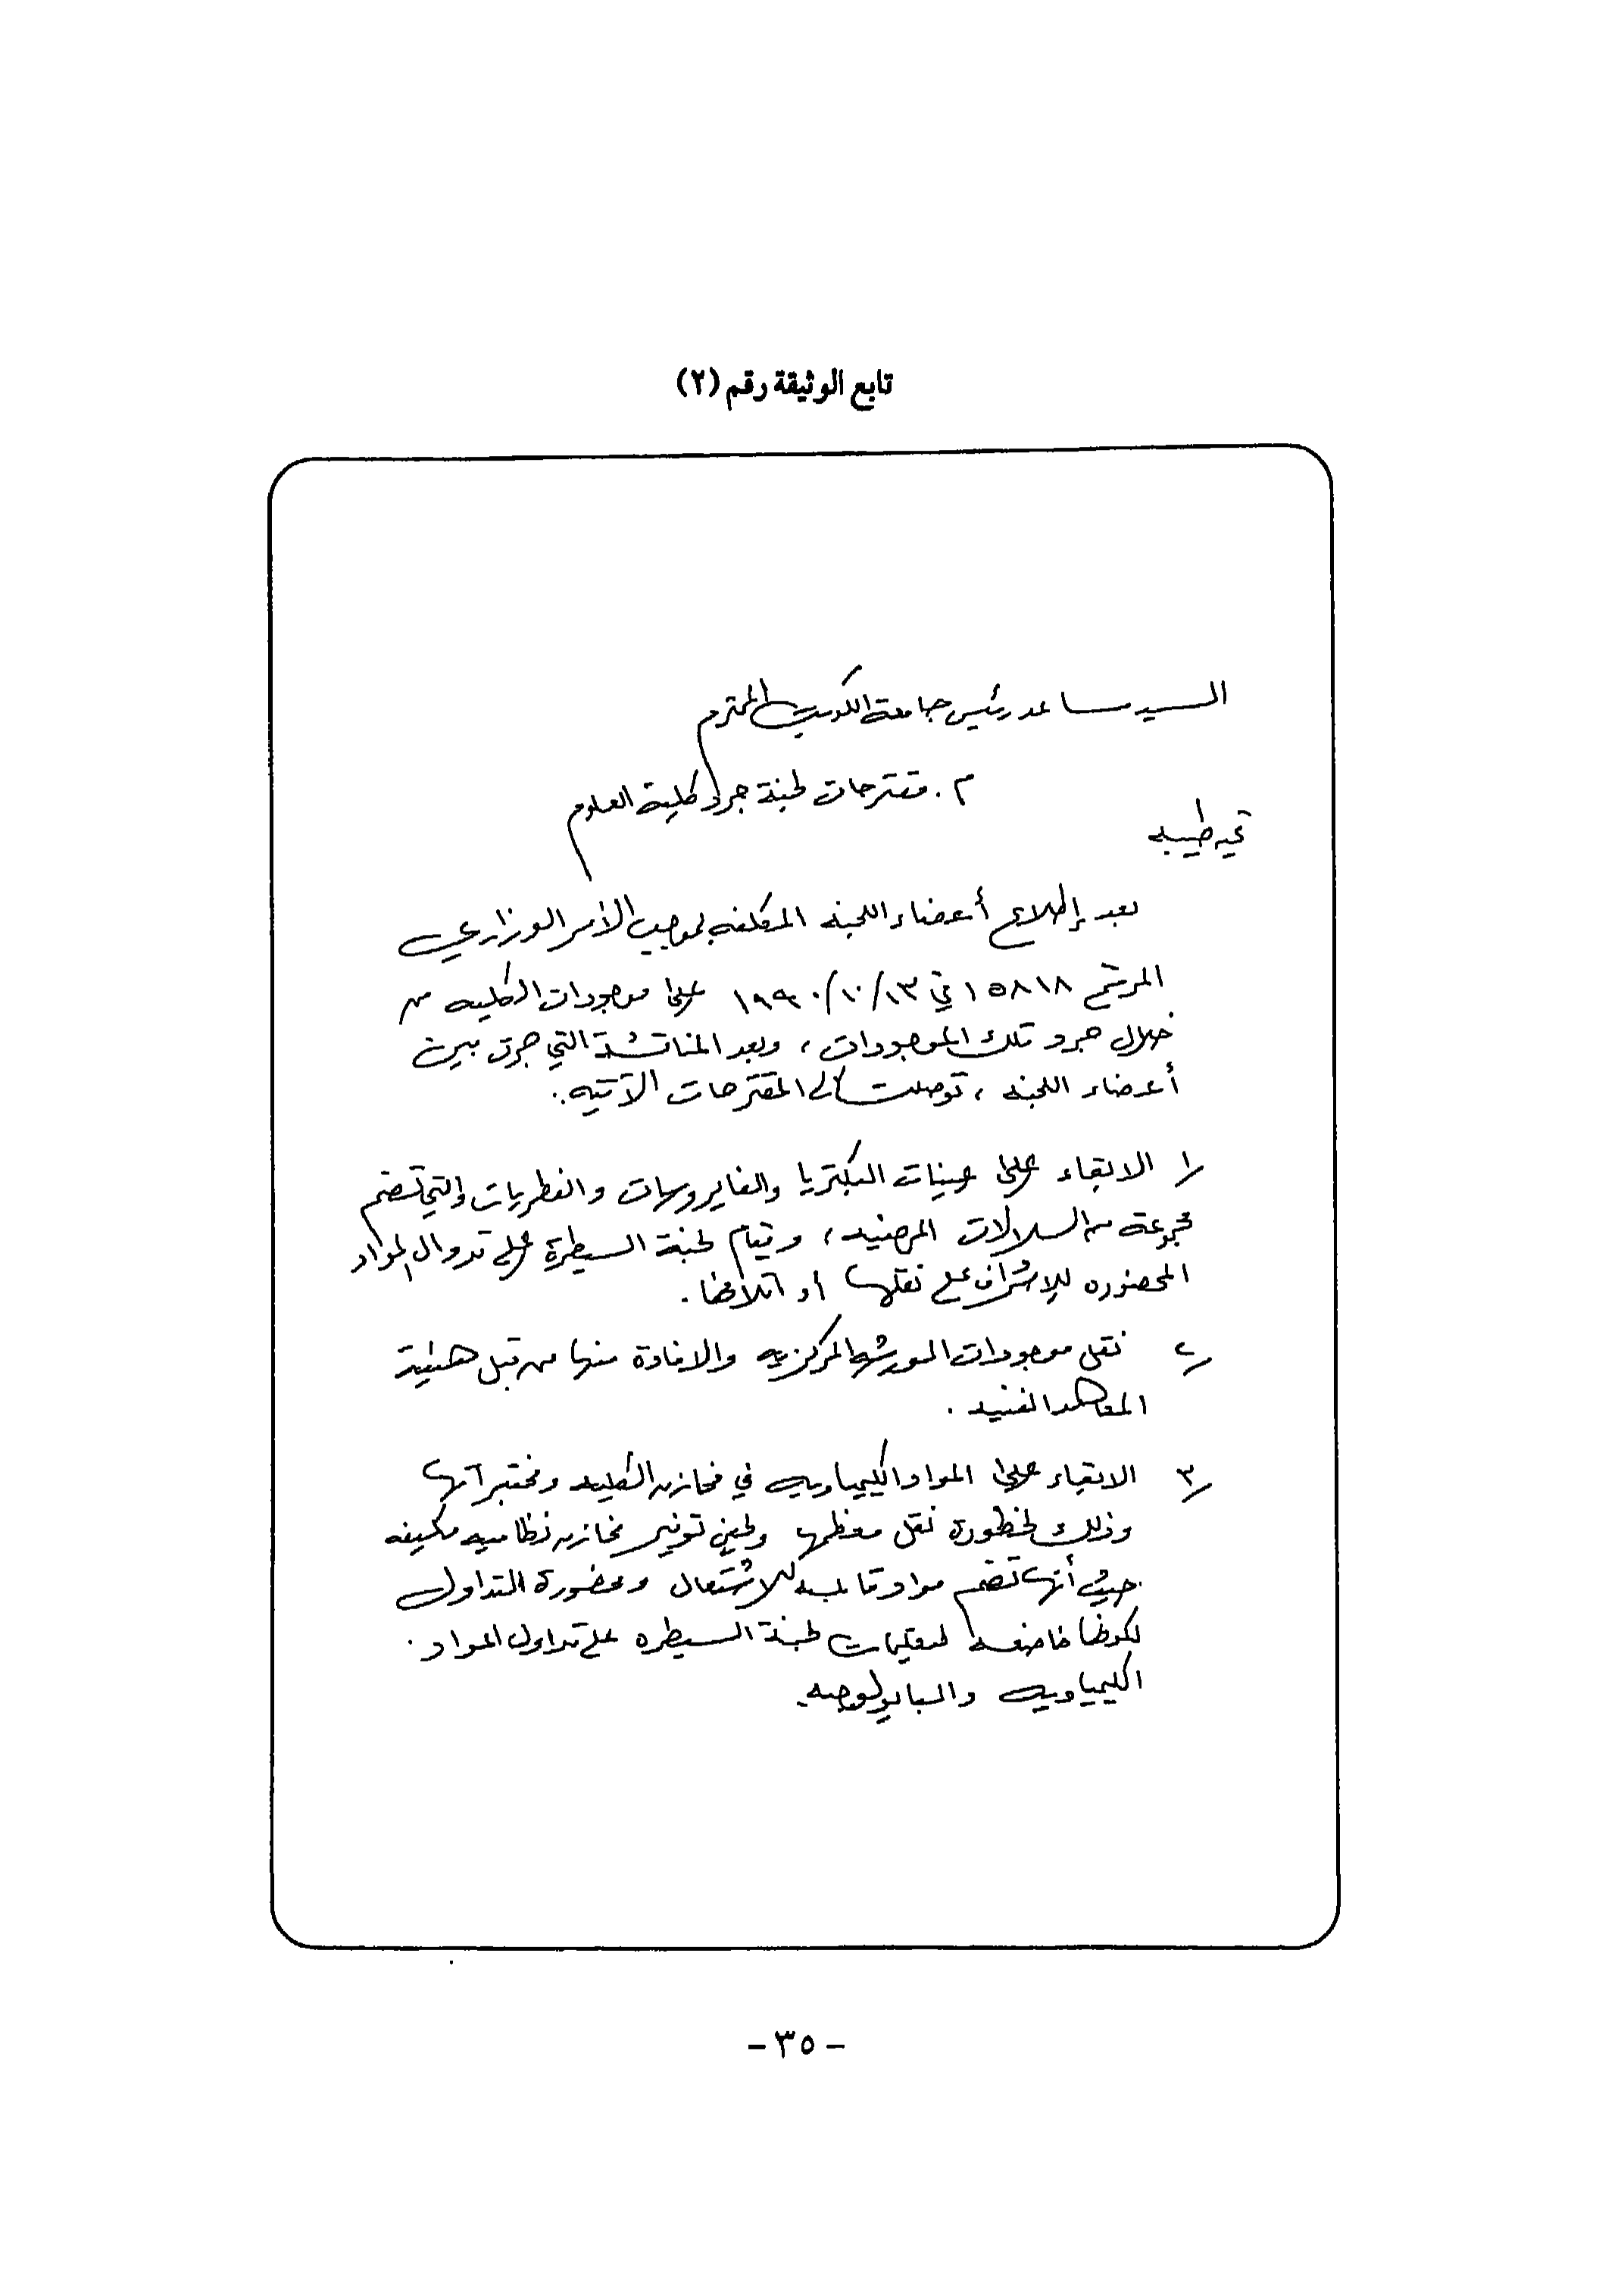 تابع الوثيقة رقم (٢)
السيد مساعد رئيس جامعة الكويت المحترم
م . مقترحات لجنة جرد كلية العلوم
تحيه طيبه
بعد إطلاع أعضاء اللجنه المكلفه بموجب الأمر الوزاري
المرقم ١٥٨١٨ في ١٣/١٠/١٩٩٠ على موجودات الكليه من
خلال جرد تلك الموجودات ، وبعد المناقشة التي جرت بين
أعضاء اللجنه ، توصلت الى المقترحات الآتيه :.
١/ الابقاء على عينات البكتريا والفايروسات والفطريات والتي تضم
مجموعة من السلالات المرضيه ، وقيام لجنة السيطرة على تدوال المواد
المحضوره للإشراف على نقلها أو اتلافها .
٢/ نقل موجودات الورشه المركزيه والافادة منها من قبل هيئة
المعاهد الفنيه .
٣/ الابقاء على المواد الكيمياويه في مخازن الكليه ومختبراتها
وذلك لخطورة نقل معظمها ولحين توفير مخازن نظاميه مكيفه
حيث أنها تضم مواد قابله للاشتعال ومحضورة التداول
لكونها خاضعه لتعليمات لجنة السيطره على تداول المواد
الكيمياويه والبايولوجيه.
- ٣٥ -